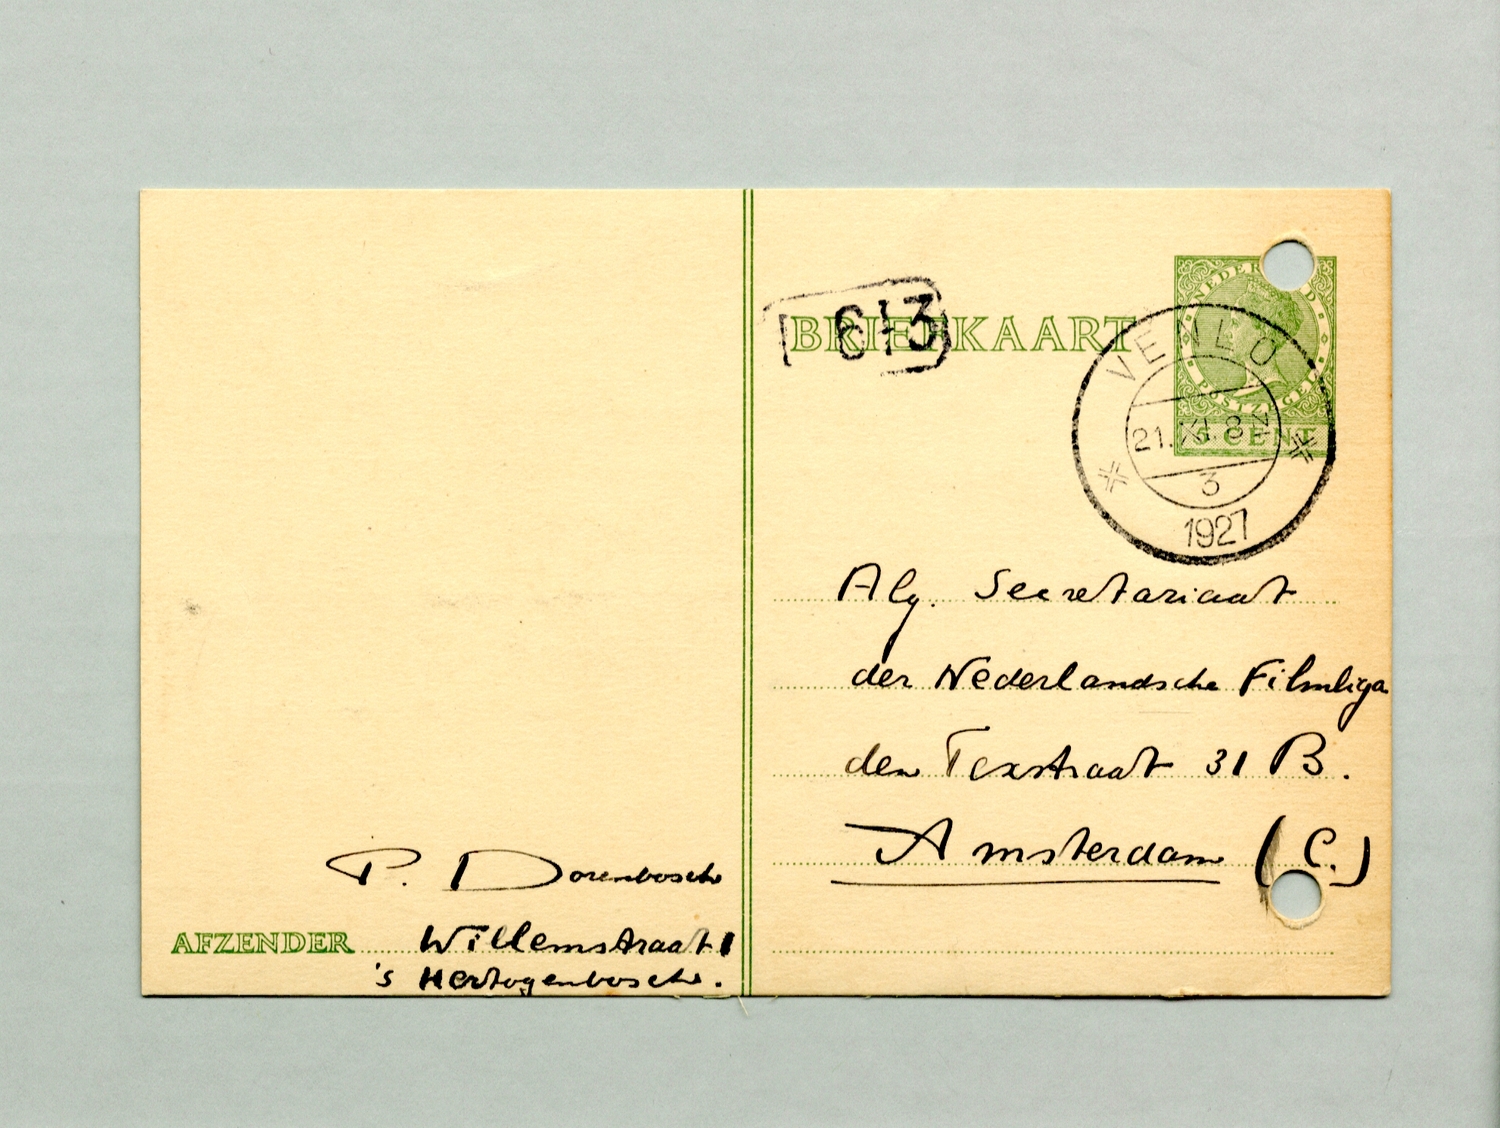 BRIEFKAART
613
NEDERLAND
POSTZEGEL
5 CENT
VENLO
21.XI. 8
3
1927
Alg. Secretariaat
der Nederlandsche Filmliga
den Texstraat 31 B.
Amsterdam (C.)
P. Dorenbosch
AFZENDER Willemstraat 1
's Hertogenbosch.